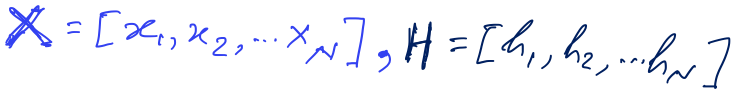 X = [x₁, x₂, ... x_N], H = [h₁, h₂, ... h_N]